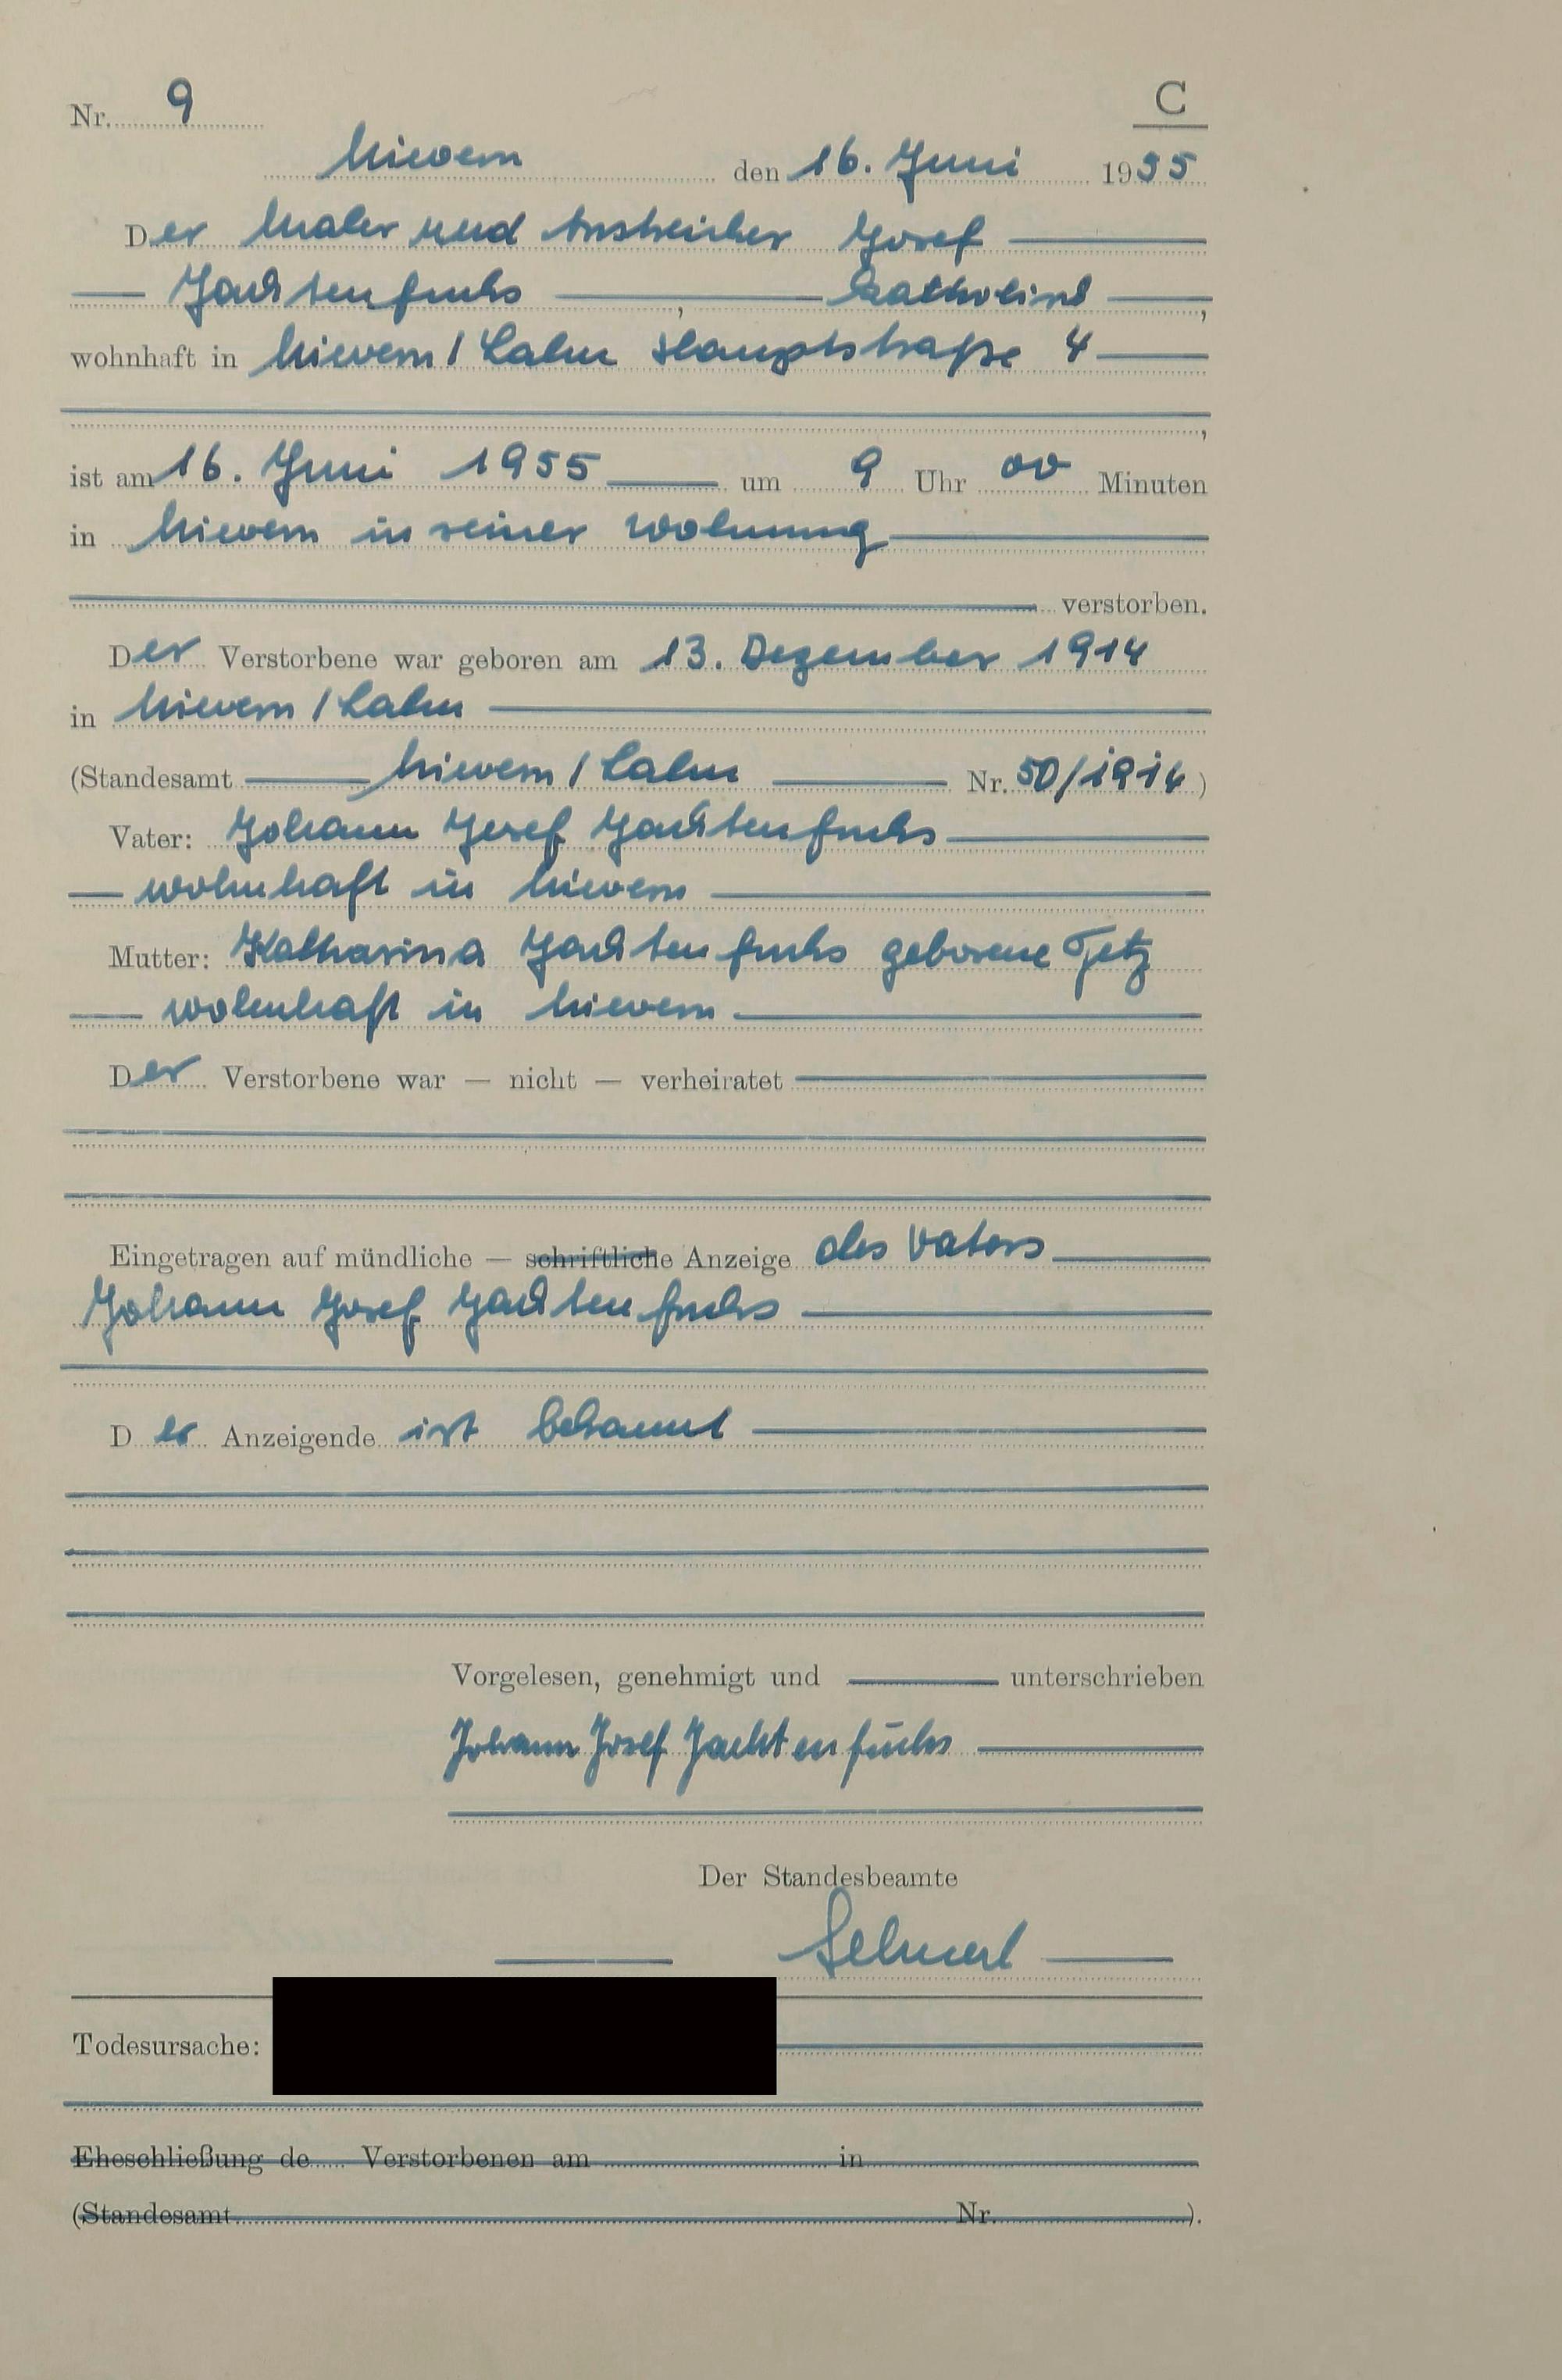 Nr. 9
C
Nievern den 16. Juni 1955
Der Maler und Anstreicher Josef
Jachtenfuchs, katholisch,
wohnhaft in Nievern / Lahn Hauptstraße 4
,
ist am 16. Juni 1955 um 9 Uhr 00 Minuten
in Nievern in seiner Wohnung
verstorben.
Der Verstorbene war geboren am 13. Dezember 1914
in Nievern / Lahn
(Standesamt Nievern / Lahn Nr. 50/1914)
Vater: Johann Josef Jachtenfuchs
wohnhaft in Nievern
Mutter: Katharina Jachtenfuchs geborene
wohnhaft in Nievern
Der Verstorbene war — nicht — verheiratet
Eingetragen auf mündliche — schriftliche Anzeige des Vaters
Johann Josef Jachtenfuchs
Der Anzeigende ist bekannt
Vorgelesen, genehmigt und unterschrieben
Johann Josef Jachtenfuchs
Der Standesbeamte
Todesursache:
Eheschließung de Verstorbenen am in
(Standesamt Nr. ).